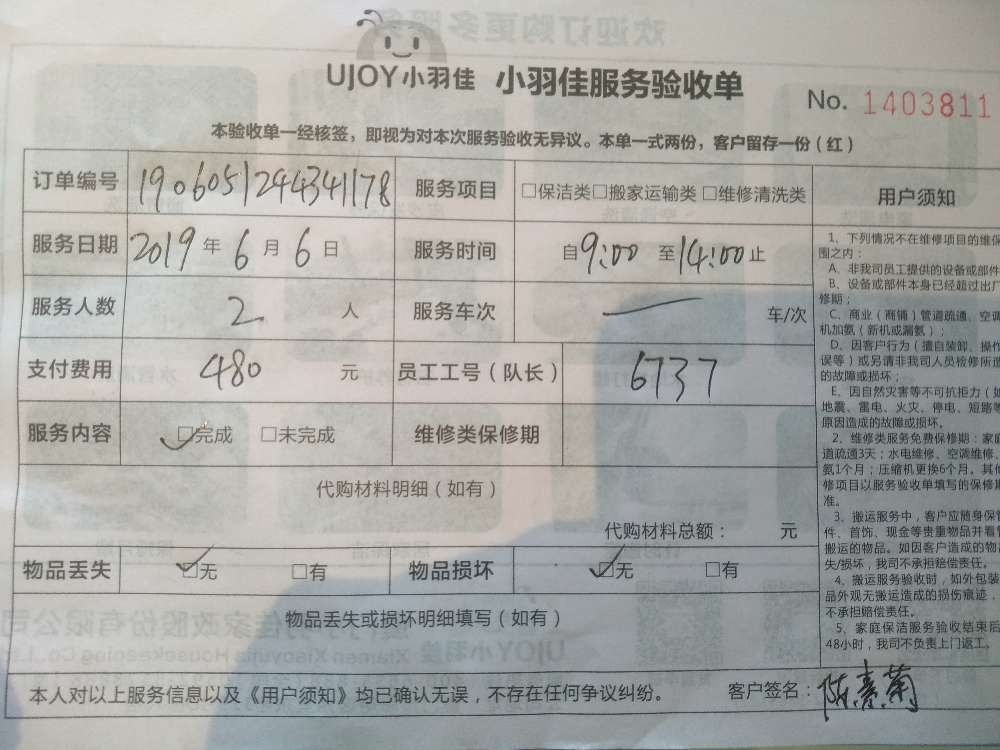 UJOY小羽佳 小羽佳服务验收单
No. 1403811
本验收单一经核签，即视为对本次服务验收无异议。本单一式两份，客户留存一份（红）
订单编号 190605124434178 服务项目 □保洁类□搬家运输类 □维修清洗类
服务日期 2019 年 6 月 6 日 服务时间 自9:00 至14:00止
服务人数 2 人 服务车次 — 车/次
支付费用 480 元 员工工号（队长） 6737
服务内容 ✓□完成 □未完成 维修类保修期
代购材料明细（如有）
代购材料总额： 元
物品丢失 ✓□无 □有 物品损坏 ✓□无 □有
物品丢失或损坏明细填写（如有）
本人对以上服务信息以及《用户须知》均已确认无误，不存在任何争议纠纷。 客户签名：陈素菊
用户须知
1、下列情况不在维修项目的维保
围之内：
A、非我司员工提供的设备或部件
B、设备或部件本身已经超过出厂
修期；
C、商业（商铺）管道疏通、空调
机加氨（新机或漏氨）；
D、因客户行为（擅自装卸、操作
误等）或另请非我司人员检修所造
的故障或损坏；
E、因自然灾害等不可抗拒力（如
地震、雷电、火灾、停电、短路等
原因造成的故障或损坏。
2、维修类服务免费保修期：家庭
道疏通3天；水电维修、空调维修、
氨1个月；压缩机更换6个月。其他
修项目以服务验收单填写的保修期
准。
3、搬运服务中，客户应随身保管
件、首饰、现金等贵重物品并看管
搬运的物品。如因客户造成的物品
失/损坏，我司不承担赔偿责任。
4、搬运服务验收时，如外包装
品外观无搬运造成的损伤痕迹，
不承担赔偿责任。
5、家庭保洁服务验收结束后
48小时，我司不负责上门返工。